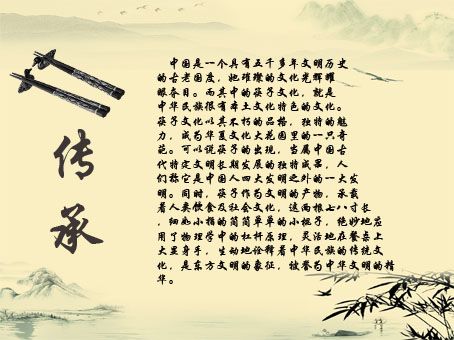 传承
中国是一个具有五千多年文明历史
的古老国度，她璀璨的文化光辉耀
眼夺目。而其中的筷子文化，就是
中华民族很有本土文化特色的文化。
筷子文化以其不朽的品格，独特的魅
力，成为华夏文化大花园里的一只奇
葩。可以说筷子的出现，当属中国古
代特定文明长期发展的独特成果，人
们称它是中国人四大发明之外的一大发
明。同时，筷子作为文明的产物，承载
着人类饮食及社会文化，这两根七八寸长
，细如小指的简简单单的小棍子，绝妙地应
用了物理学中的杠杆原理，灵活地在餐桌上
大显身手，生动地诠释着中华民族的传统文
化，是东方文明的象征，被誉为中华文明的精
华。